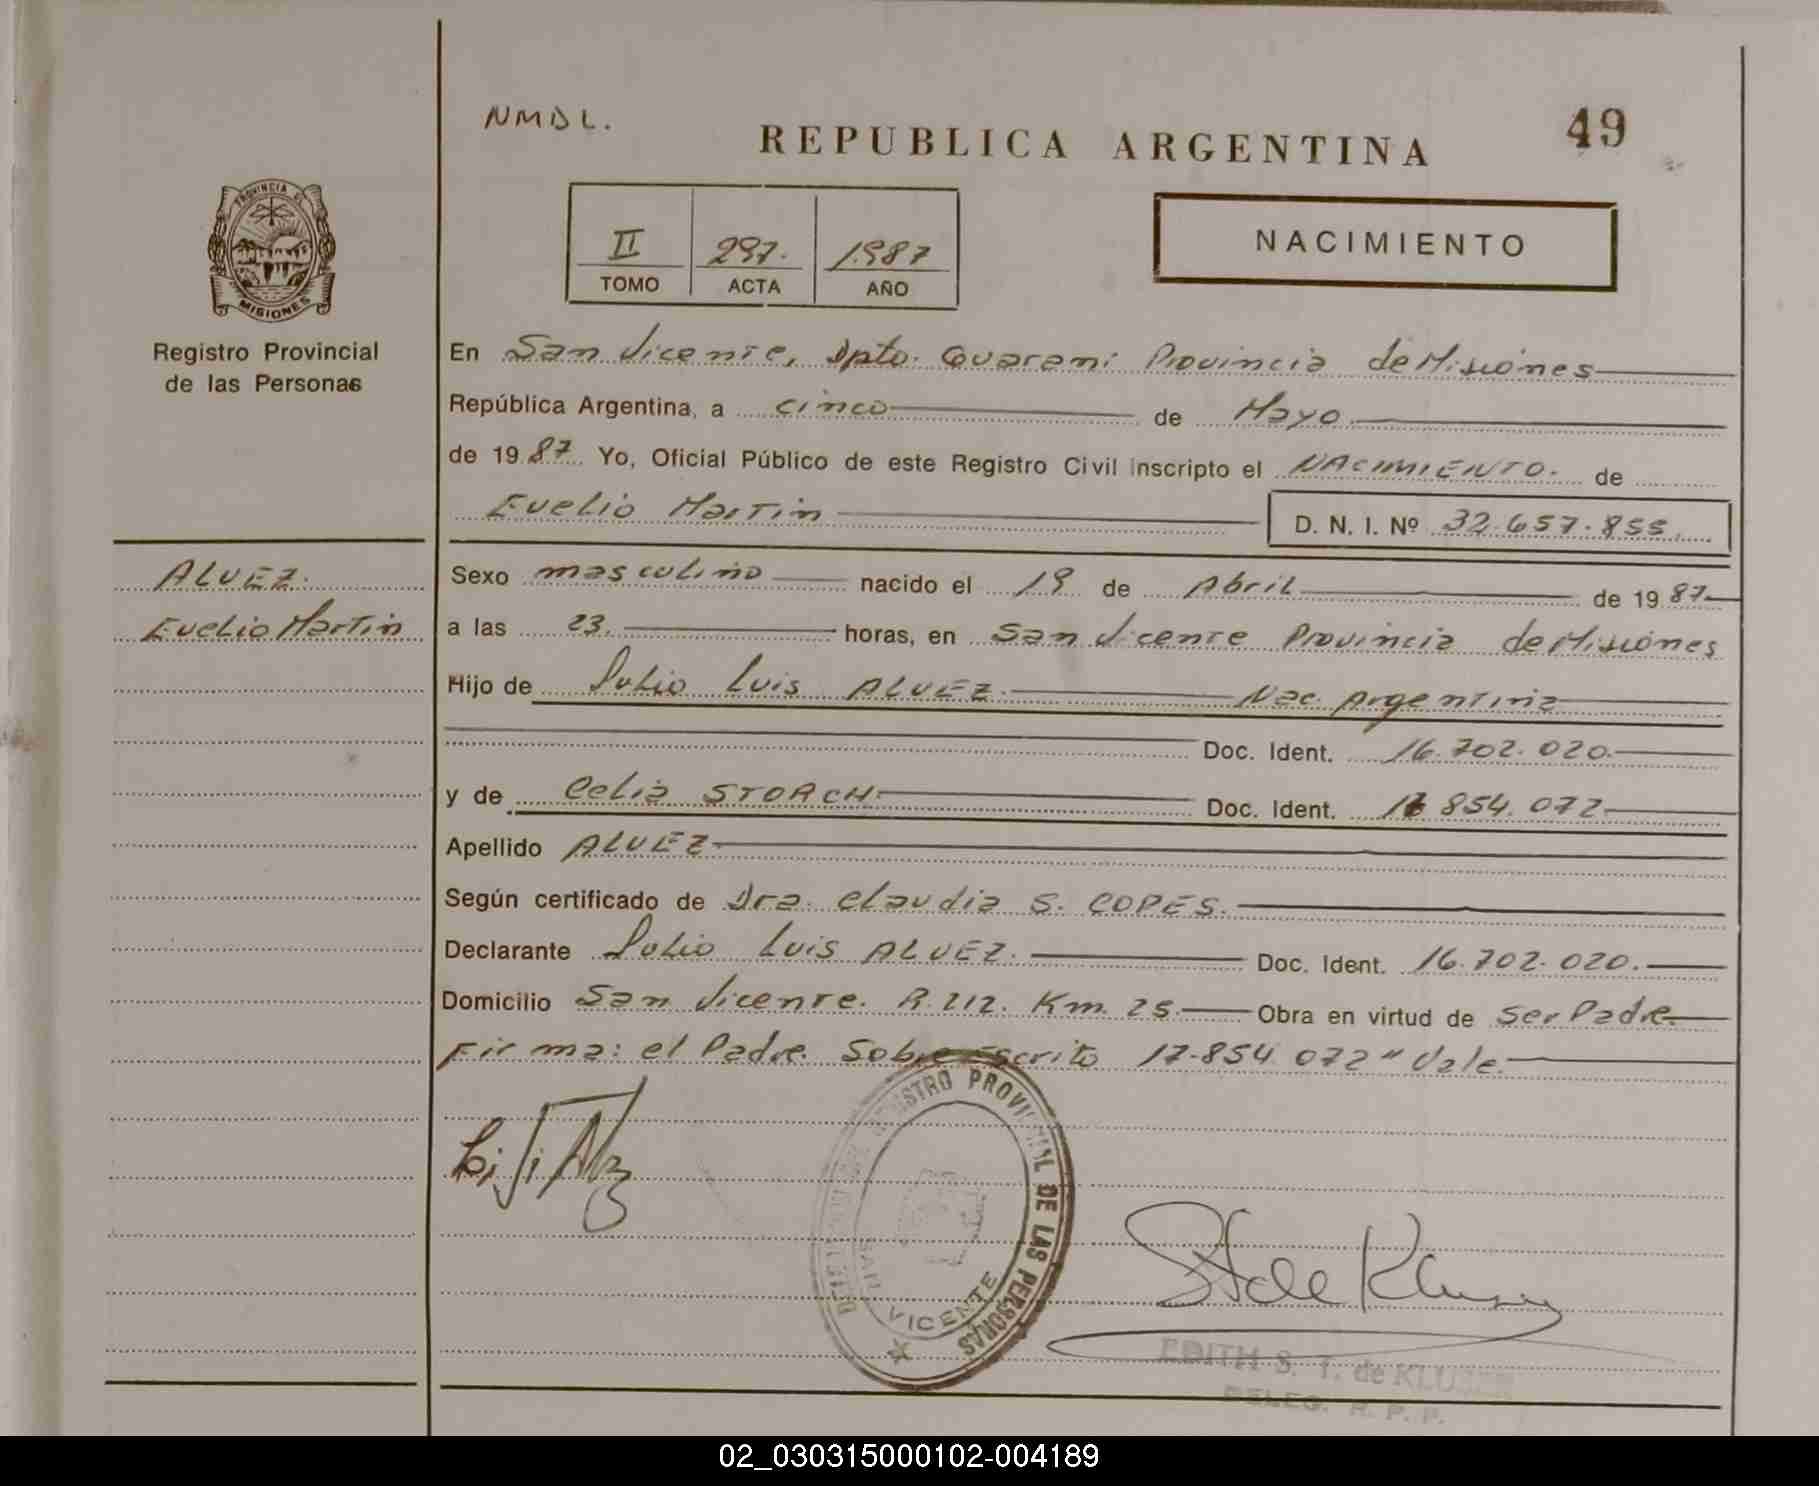 NMDL.
REPUBLICA ARGENTINA
49
PROVINCIA DE
MISIONES
Registro Provincial
de las Personas
II 297. 1.987
TOMO ACTA AÑO
NACIMIENTO
En San Vicente, Dpto. Guarani Provincia de Misiones
República Argentina, a cinco de Mayo
de 1987. Yo, Oficial Público de este Registro Civil inscripto el NACIMIENTO. de
Evelio Martin D. N. I. Nº 32.657.855.
ALVEZ.
Evelio Martin
Sexo masculino nacido el 19 de Abril de 1987
a las 23. horas, en San Vicente Provincia de Misiones
Hijo de Julio Luis ALVEZ. Nac. Argentina
Doc. Ident. 16.702.020.
y de Celia STORCH Doc. Ident. 17 854.072
Apellido ALVEZ
Según certificado de Dra. Claudia S. COPES.
Declarante Julio Luis ALVEZ. Doc. Ident. 16.702.020.
Domicilio San Vicente. R. 212. Km. 25. Obra en virtud de ser Padre.
Firma: el Padre. Sobre Escrito 17.854.072" Vale.
REGISTRO PROVINCIAL DE LAS PERSONAS
SAN VICENTE
St de Kluser
EDITH S. T. de KLUSER
DELEG. R. P. P.
02_030315000102-004189